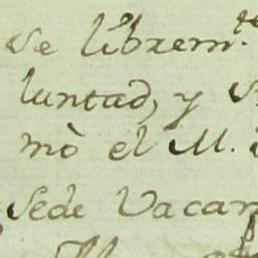 se librem.te
luntad, y
mò el M.
Sede Vacan